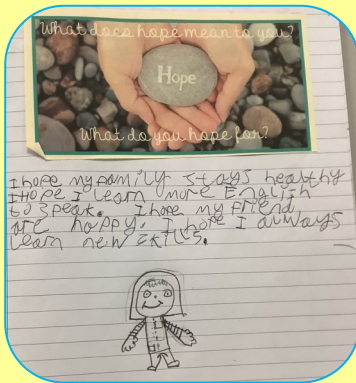 What does hope mean to you?
Hope
What do you hope for?
I hope my family stays healthy
I Hope I learn more English
to speak. I hope my friend
are happy. I hope I always
learn new skills.